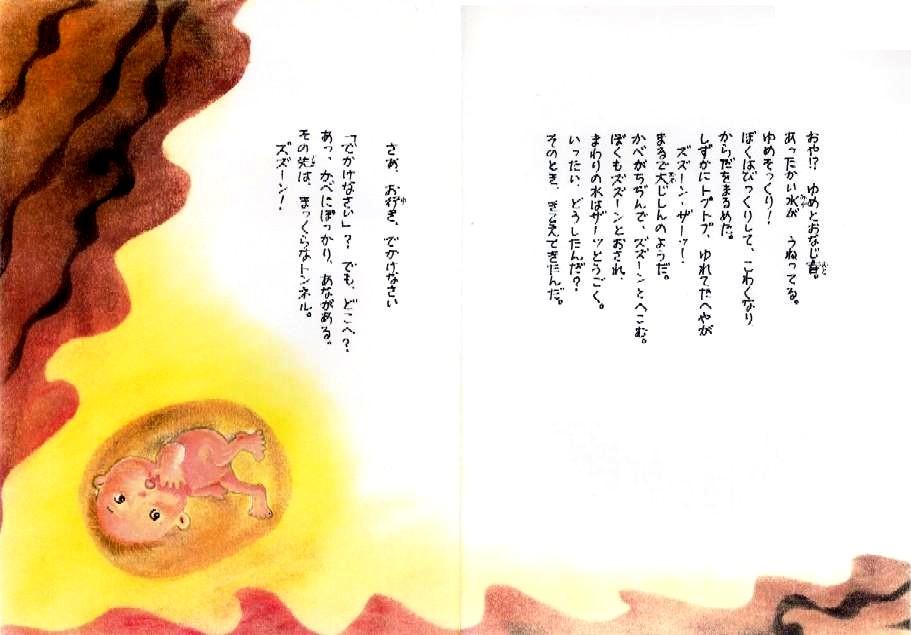 おや!? ゆめとおなじ音。
あったかい水が うねってる。
ゆめそっくり!
ぼくはびっくりして、こわくなり
からだをまるめた。
しずかにトプトプ、ゆれてたへやが
ズズーン・ザーッ!
まるで大じしんのようだ。
かべがちぢんで、ズズーンとへこむ。
ぼくもズズーンとおされ、
まわりの水はザーッとうごく。
いったい、どうしたんだ?
そのとき、きこえてきたんだ。
さあ、お行き、でかけなさい
「でかけなさい」? でも、どこへ?
あっ、かべにぽっかり、あながある。
その先は、まっくらなトンネル。
ズズーン!